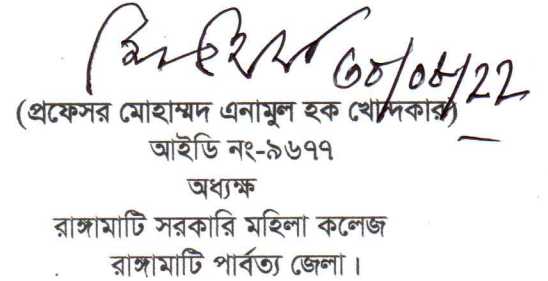 ৩০/০৫/22
(প্রফেসর মোহাম্মদ এনামুল হক খোন্দকার)
আইডি নং-৯৬৭৭
অধ্যক্ষ
রাঙ্গামাটি সরকারি মহিলা কলেজ
রাঙ্গামাটি পার্বত্য জেলা।